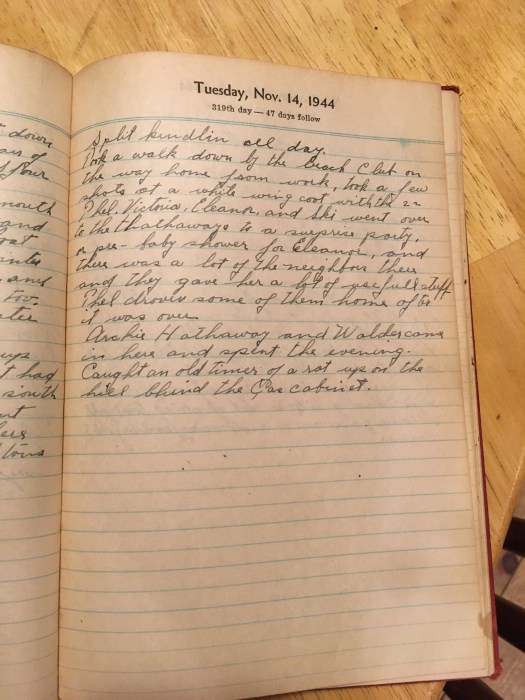 Tuesday, Nov. 14, 1944
319th day — 47 days follow
Split kindlin all day.
Took a walk down by the Beach Club on
the way home from work, took a few
shots at a white wing coot with the 22
Phel, Victoria, Eleanor, and Ski went over
to the Hathaways to a surprise party,
or pre-baby shower for Eleanor, and
there was a lot of the neighbors there
and they gave her a lot of usefull stuff
Phel drove some of them home after
it was over
Archie Hathaway and Walder came
in here and spent the evening.
Caught an old timer of a rat up on the
hill bhind the Gas cabinet.
down
of
four
mouth
and
oat
and
ups
t had
south